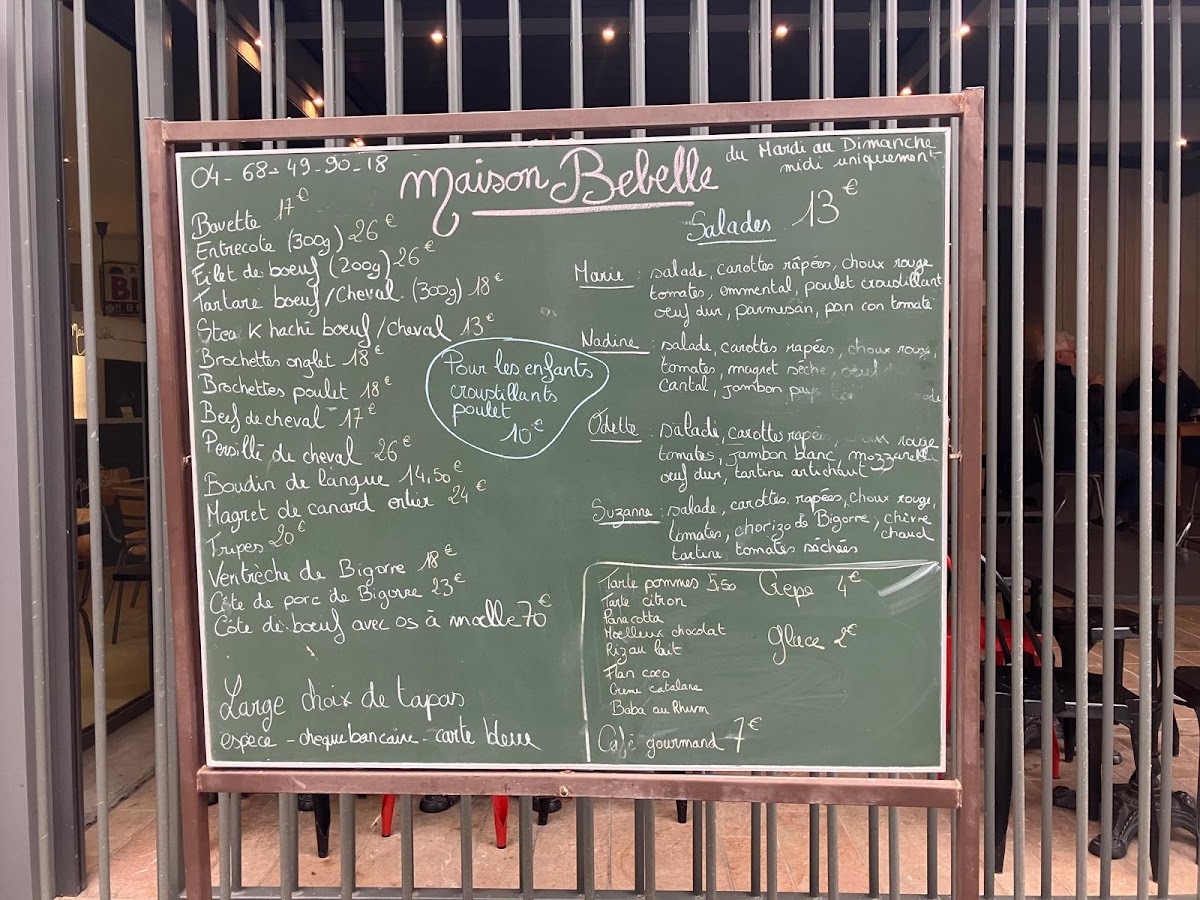 04-68-49-90-18
Maison Bebelle
du Mardi au Dimanche
midi uniquement
Bavette 17€
Entrecote (300g) 26€
Filet de boeuf (200g) 26€
Tartare boeuf/Cheval (300g) 18€
Steak haché boeuf/cheval 13€
Brochettes onglet 18€
Brochettes poulet 18€
Beef de cheval 17€
Persillé de cheval 26€
Boudin de langue 14,50€
Magret de canard entier 24€
Tripes 20€
Ventrèche de Bigorre 18€
Côte de porc de Bigorre 23€
Côte de boeuf avec os à moelle 70€
Large choix de tapas
espece - cheque bancaire - carte bleue
Pour les enfants
croustillants
poulet
10€
Salades 13€
Marie : salade, carottes râpées, choux rouge
tomates, emmental, poulet croustillant
oeuf dur, parmesan, pan con tomate
Nadine : salade, carottes rapées, choux rouge,
tomates, magret séché, oeuf
cantal, jambon pays
Odette : salade, carottes rapées, choux rouge
tomates, jambon blanc, mozzarella
oeuf dur, tartine artichaut
Suzanne : salade, carottes rapées, choux rouge,
tomates, chorizo de Bigorre, chèvre chaud
tartine tomates séchées
Tarte pommes 5,50
Tarte citron
Panacotta
Moelleux chocolat
Riz au lait
Flan coco
Creme catalane
Baba au Rhum
Café gourmand 7€
Crepe 4€
glace 2€